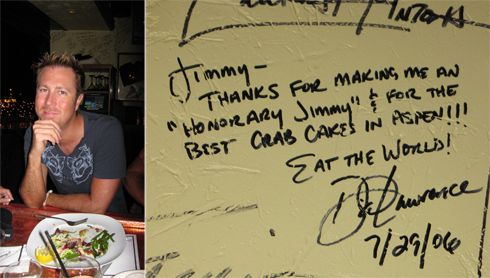 INTOSH
Jimmy-
THANKS FOR MAKING ME AN
"HONORARY JIMMY" & FOR THE
BEST CRAB CAKES IN ASPEN!!!
EAT THE WORLD!
Lawrence
7/29/06